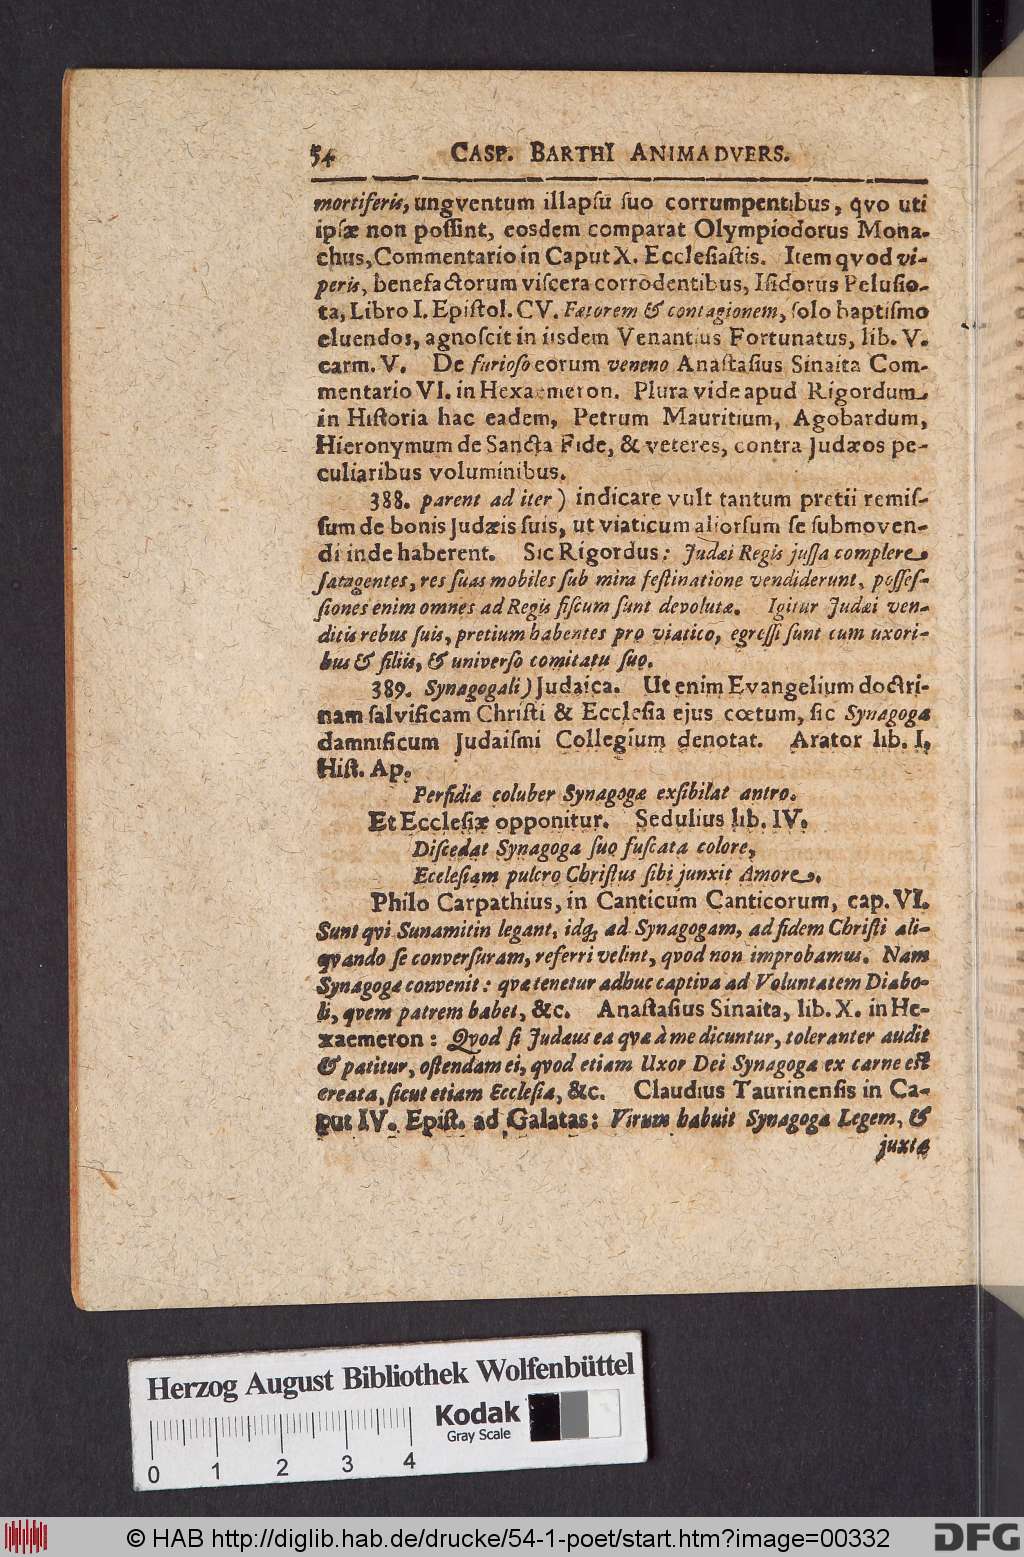 54 CASP. BARTHI ANIMADVERS.
mortiferis, ungventum illapsu suo corrumpentibus, qvo uti
ipsæ non possint, eosdem comparat Olympiodorus Mona-
chus, Commentario in Caput X. Ecclesiastis. Item qvod vi-
peris, benefactorum viscera corrodentibus, Isidorus Pelusio-
ta, Libro I. Epistol. CV. Fætorem & contagionem, solo baptismo
eluendos, agnoscit in iisdem Venantius Fortunatus, lib. V.
carm. V. De furioso eorum veneno Anastasius Sinaita Com-
mentario VI. in Hexaemeron. Plura vide apud Rigordum
in Historia hac eadem, Petrum Mauritium, Agobardum,
Hieronymum de Sancta Fide, & veteres, contra Judæos pe-
culiaribus voluminibus.
388. parent ad iter) indicare vult tantum pretii remis-
sum de bonis Judæis suis, ut viaticum aliorsum se submoven-
di inde haberent. Sic Rigordus: Judæi Regis jussa complere
satagentes, res suas mobiles sub mira festinatione vendiderunt, posses-
siones enim omnes ad Regis fiscum sunt devolutæ. Igitur Judæi ven-
ditis rebus suis, pretium habentes pro viatico, egressi sunt cum uxori-
bus & filiis, & universo comitatu suo.
389. Synagogali) Judaica. Ut enim Evangelium doctri-
nam salvificam Christi & Ecclesia ejus cœtum, sic Synagoga
damnificum Judaismi Collegium denotat. Arator lib. I.
Hist. Ap.
Perfidiæ coluber Synagogæ exsibilat antro.
Et Ecclesiæ opponitur. Sedulius lib. IV.
Discedat Synagoga suo fuscata colore,
Ecclesiam pulcro Christus sibi junxit Amore.
Philo Carpathius, in Canticum Canticorum, cap. VI.
Sunt qvi Sunamitin legant, idq; ad Synagogam, ad fidem Christi ali-
qvando se conversuram, referri velint, qvod non improbamus. Nam
Synagogæ convenit: qvæ tenetur adhuc captiva ad Voluntatem Diabo-
li, qvem patrem habet, &c. Anastasius Sinaita, lib. X. in He-
xaemeron: Qvod si Judæus ea qvæ à me dicuntur, toleranter audit
& patitur, ostendam ei, qvod etiam Uxor Dei Synagoga ex carne est
creata, sicut etiam Ecclesia, &c. Claudius Taurinensis in Ca-
put IV. Epist. ad Galatas: Virum habuit Synagoga Legem, &
juxta
Herzog August Bibliothek Wolfenbüttel
Kodak
Gray Scale
0 1 2 3 4
© HAB http://diglib.hab.de/drucke/54-1-poet/start.htm?image=00332
DFG